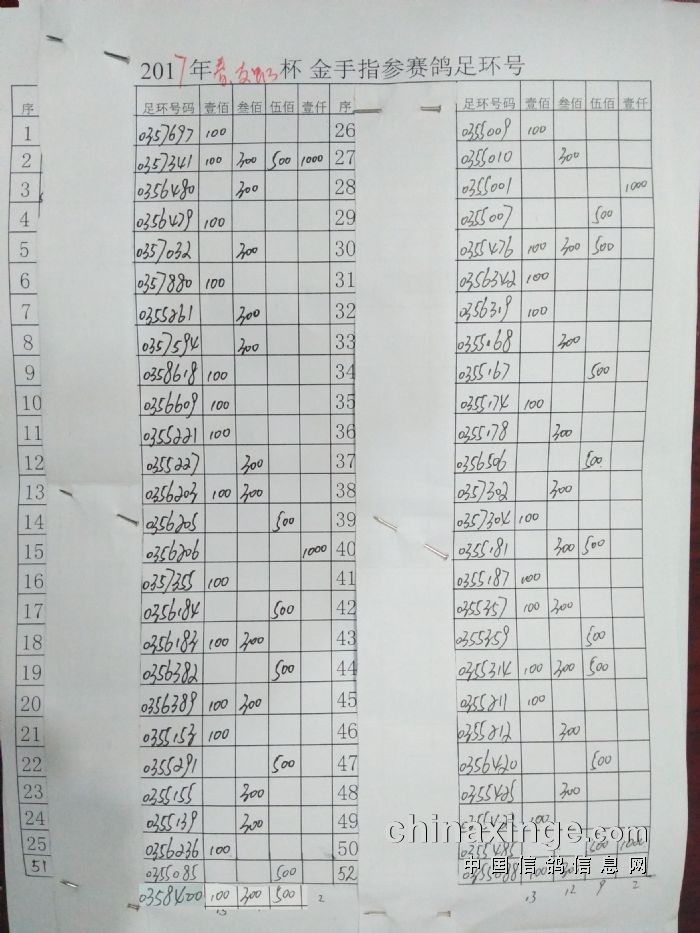 2017年春 杯 金手指参赛鸽足环号
序 足环号码 壹佰 叁佰 伍佰 壹仟 序 足环号码 壹佰 叁佰 伍佰 壹仟
1 0357697 100 26 0355009 100
2 0357341 100 300 500 1000 27 0355010 300
3 0356480 300 28 0355001 1000
4 0356479 100 29 0355007 500
5 0357032 300 30 0355476 100 300 500
6 0357880 100 31 0356342 100
7 0355261 300 32 0356319 100
8 0357594 300 33 0355168 300
9 0358618 100 34 0355167 500
10 0356609 100 35 0355174 100
11 0355221 100 36 0355178 300
12 0355227 300 37 0356506 500
13 0356203 100 300 38 0357302 300
14 0356205 500 39 0357304 100
15 0356206 1000 40 0355181 300 500
16 0357355 100 41 0355187 100
17 0356184 500 42 0355357 100 300
18 0356183 100 300 43 0355359 500
19 0356382 500 44 0355314 100 300 500
20 0356389 100 300 45 0355211 100
21 0355153 100 46 0355212 300
22 0355291 500 47 0356420 500
23 0355155 300 48 0355425 300
24 0355139 300 49 100
25 0356236 100 50 0355485 500 1000
51 0355085 500 52 100 300
0358400 100 300 500 2 13 12 9 2
chinaxinge.com
中国信鸽信息网